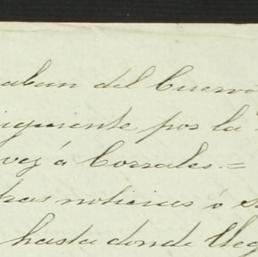 aban del Cuervo
iguiente por la
vez á Corrales.=
tras noticias ó s
hasta donde lleg